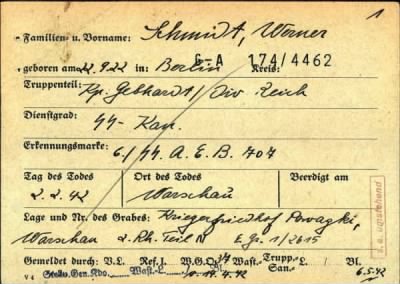 1
Familien- u. Vorname: Schmidt, Werner
G-A 174/4462
geboren am 22.9.22 in: Berlin Kreis:
Truppenteil: Kp. Gebhardt / Div Reich
Dienstgrad: SS- Kan.
Erkennungsmarke: 6./SS. A.E.B. 707
Tag des Todes Ort des Todes Beerdigt am
2.2.42 Warschau
Lage und Nr. des Grabes: Kriegerfriedhof Powązki,
Warschau 2. Rh. Teil N E. Gr. 1/2615
s. a. umstehend
Gemeldet durch: V.L. Ref. I. W.G.O. Wast- Trupp- L. Bl.
Stellv. Gen. Kdo. Wast-L. 19.4.42 San.- Bl. 6.5.42
V 4